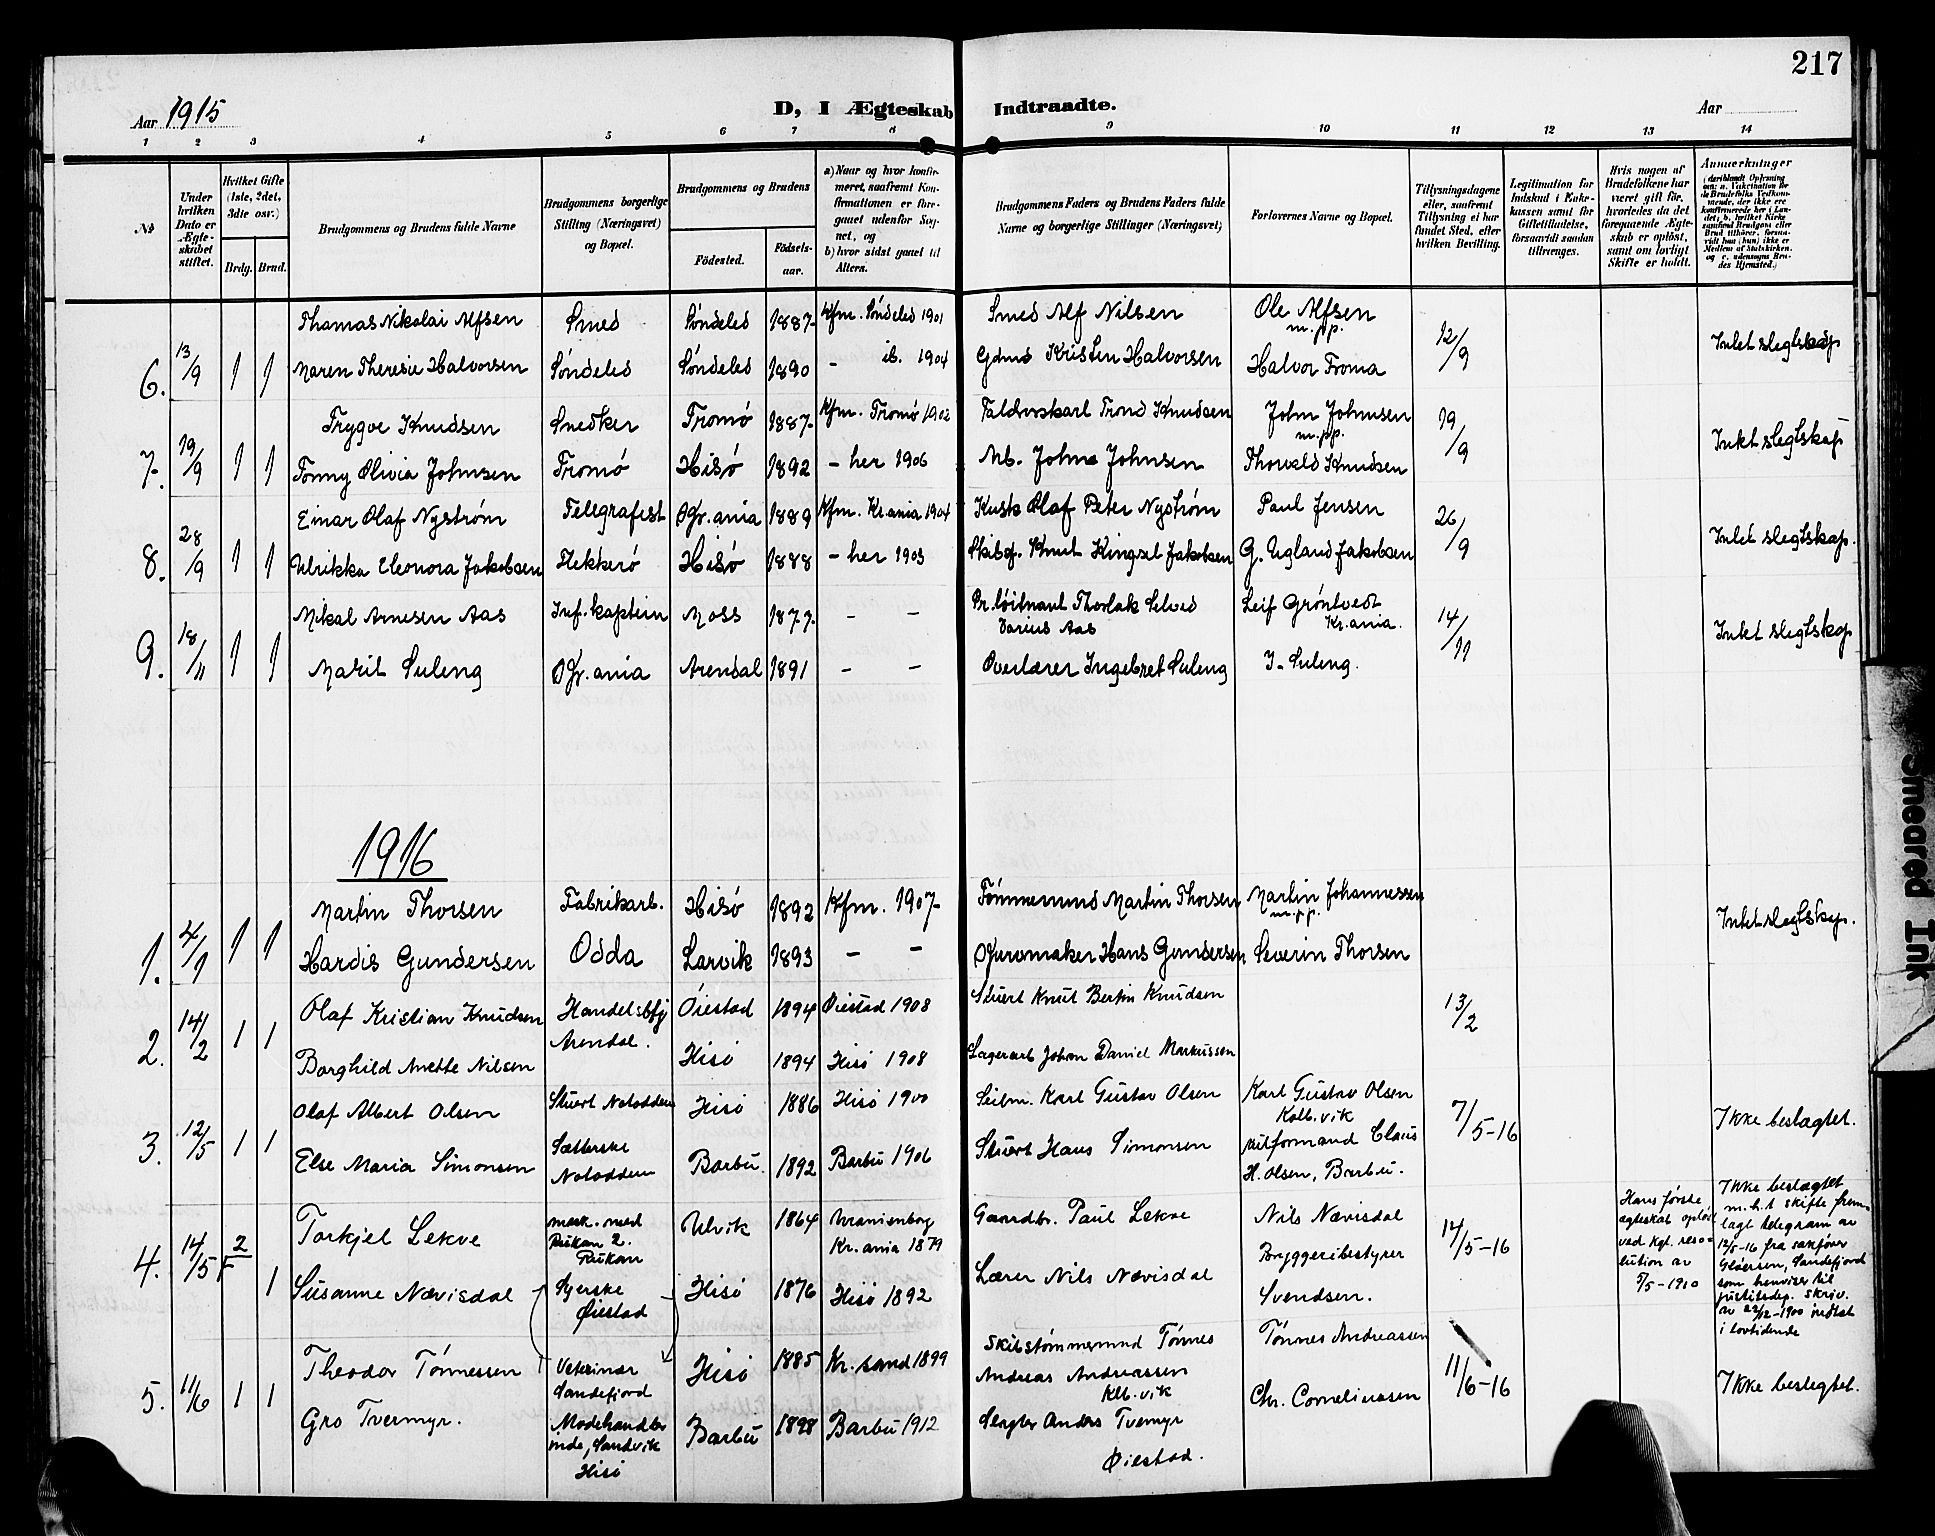 217
Aar 1915
D, I Ægteskab Indtraadte.
Aar
1 2 3 4 5 6 7 8 9 10 11 12 13 14
№
Under hvilken Dato er Ægteskabet stiftet.
Hvilket Gifte (1ste, 2det, 3die osv.)
Brdg. Brud.
Brudgommens og Brudens fulde Navne
Brudgommens borgerlige Stilling (Næringsvei) og Bopæl.
Brudgommens og Brudens
Födested. Födselsaar.
a) Naar og hvor konfirmeret, saafremt Konfirmationen er foregaaet udenfor Sognet, og
b) hvor sidst gaaet til Alters.
Brudgommens Faders og Brudens Faders fulde Navne og borgerlige Stillinger (Næringsvei)
Forlovernes Navne og Bopæl.
Tillysningsdagene eller, saafremt Tillysning ei har fundet Sted, efter hvilken Bevilling.
Legitimation for Indskud i Enkekassen samt for Giftetilladelse, forsaavidt saadan tiltrænges.
Hvis nogen af Brudefolkene har været gift før, hvorledes da det foregaaende Ægteskab er oplöst, samt om lovligt Skifte er holdt.
Anmerkninger
Thomas Nikolai Alfsen Smed Söndeled 1887 Kfm. Söndeled 1901 Smed Alf Nilsen Ole Alfsen m.pp. 12/9 Intet slegtskap
6. 13/9 1 1 Maren Theresie Halvorsen Söndeled Söndeled 1890 - ib. 1904 Gdmd Kristen Halvorsen Halvor Froma
Trygve Knudsen Snedker Tromö 1887 Kfm. Tromö 1902 Trond Knudsen John Johnsen m.pp. 19/9 Intet slegtskap
7. 19/9 1 1 Tonny Olivia Johnsen Tromö Hisö 1892 - her 1906 Mb. John Johnsen Thorvald Knudsen
Einar Olaf Nyström Telegrafist Kr.ania 1889 Kfm. Kr.ania 1904 Kusk Olaf Peter Nyström Paul Jensen 26/9 Intet slegtskap.
8. 28/9 1 1 Ulrikka Eleonora Jakobsen Flekkerö Hisö 1888 - her 1903 Knut Kingsel Jakobsen G. Ugland Jakobsen
Mikal Arnesen Aas Inf. kaptein Moss 1877 - - Pr. löitnant Thorlak Darius Aas Leif Gröntvedt Kr.ania. 14/11 Intet slegtskap
9. 18/11 1 1 Marit Suleng Kr.ania Arendal 1891 - - Overlærer Ingebret Suleng I. Suleng.
1916
Martin Thorsen Fabrikarb. Hisö 1892 Kfm. 1907 Tömmermnd Martin Thorsen Martin Johannessen m.p.p. Intet slegtskap.
1. 4/1 1 1 Hardis Gundersen Odda Larvik 1893 - - Kurvmaker Hans Gundersen Severin Thorsen
Olaf Kristian Knudsen Handelsbfg Arendal. Öiestad 1894 Öiestad 1908 Stuert Knut Bertin Knudsen 13/2
2. 14/2 1 1 Borghild Anette Nilsen Hisö 1894 Hisö 1908 Lagerarb John Daniel Markussen
Olaf Albert Olsen Stuert Notodden Hisö 1886 Hisö 1900 Seilm. Karl Gustav Olsen Karl Gustav Olsen Kolb.vik 7/5-16 Ikke beslægtet.
3. 12/5 1 1 Else Maria Simonsen Sætterske Notodden Barbu. 1892 Barbu 1906 Stuert Hans Simonsen skilformand Claus H. Olsen, Barbu.
Torkjel Lekve mask. med Rukan 2. Rukan Ulvik 1864 Uranienborg Kr.ania 1879 Gaardbr. Paul Lekve Nils Nævisdal 14/5-16
Hans förste ægteskab oplöst ved kgl. resolution av 5/5-1910
Ikke beslægtet m.h.t skifte fremlagt telegram av 12/5-16 fra sakförer Glöersen, Sandefjord som henviser til justitsdep. skriv. av 22/12-1900 indtat i lovtidende
4. 14/5 2 1 Susanne Nævisdal Syerske Öiestad Hisö 1876 Hisö 1892 Lærer Nils Nævisdal Bryggeribestyrer Svendsen.
Theodor Tönnessen Veterinær Sandefjord Hisö 1885 Kr. sand 1899 Skibstömmermnd Tönnes Andreas Andreassen Klb.vik Tönnes Andreassen 11/6-16 Ikke beslegtet.
5. 11/6 1 1 Gro Tvermyr. Modehandlerinde, Sandvik Hisö Barbu 1898 Barbu 1912 Slagter Anders Tvermyr Öiestad. Chr. Corneliussen
Smeared Ink